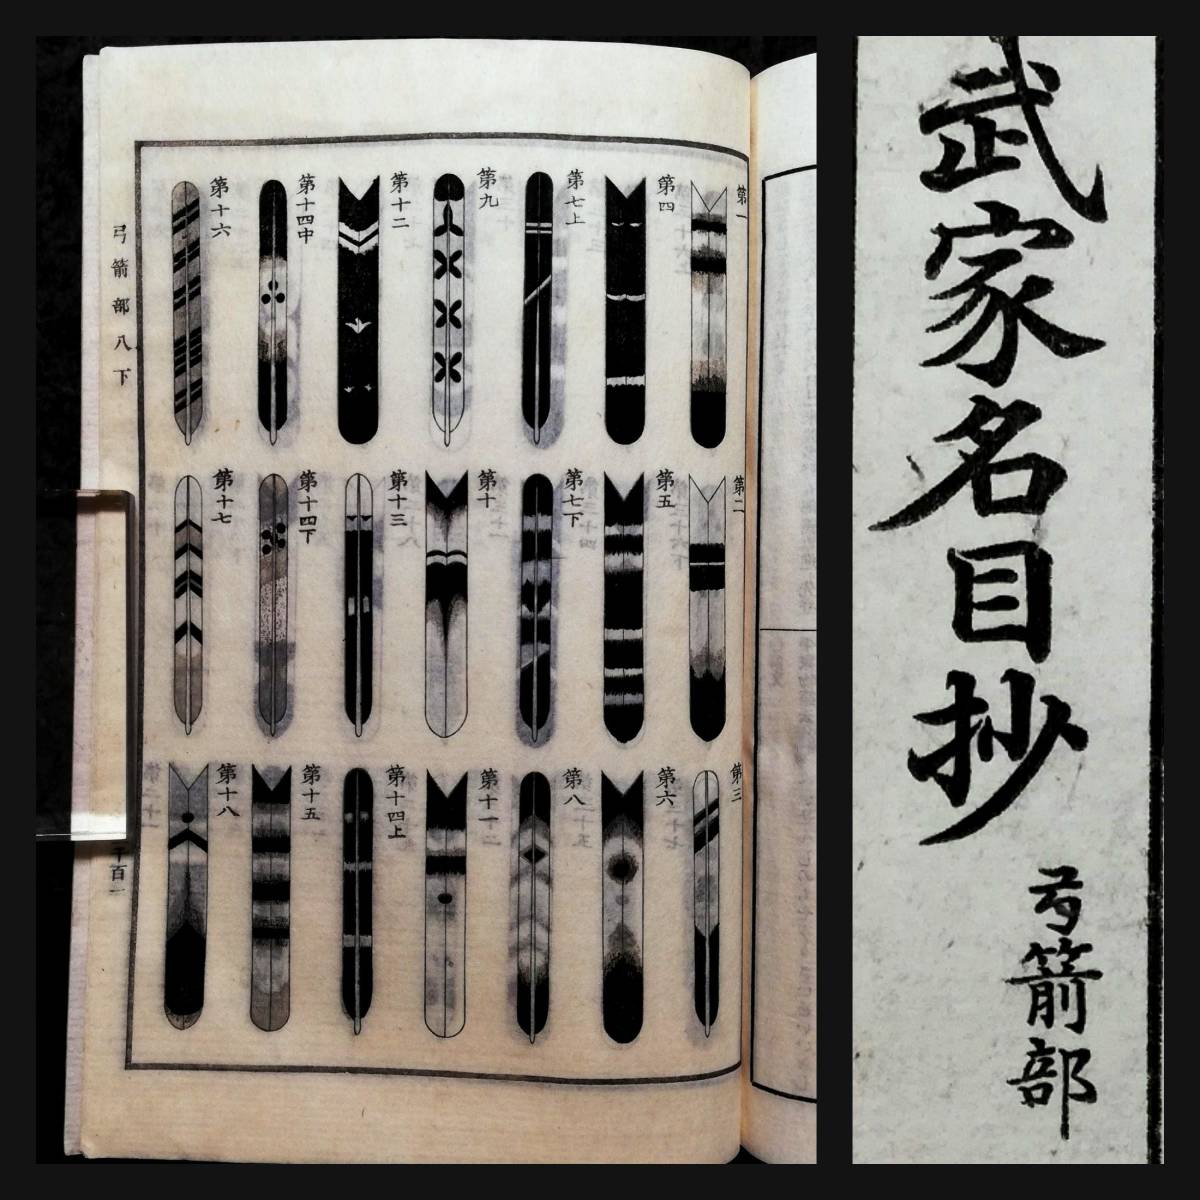 武家名目抄
弓箭部
第一
第二
第三
第四
第五
第六
第七上
第七下
第八
第九
第十
第十一
第十二
第十三
第十四上
第十四中
第十四下
第十五
第十六
第十七
第十八
弓箭部八下
千百一